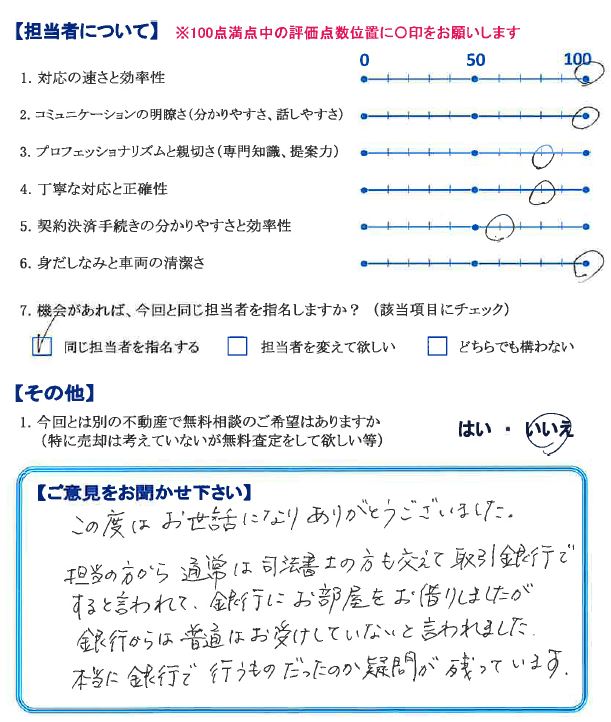 【担当者について】 ※100点満点中の評価点数位置に〇印をお願いします
0 50 100
1. 対応の速さと効率性
2. コミュニケーションの明瞭さ(分かりやすさ、話しやすさ)
3. プロフェッショナリズムと親切さ(専門知識、提案力)
4. 丁寧な対応と正確性
5. 契約決済手続きの分かりやすさと効率性
6. 身だしなみと車両の清潔さ
7. 機会があれば、今回と同じ担当者を指名しますか？ (該当項目にチェック)
同じ担当者を指名する 担当者を変えて欲しい どちらでも構わない
【その他】
1. 今回とは別の不動産で無料相談のご希望はありますか
(特に売却は考えていないが無料査定をして欲しい等)
はい ・ いいえ
【ご意見をお聞かせ下さい】
この度は お世話になり ありがとうございました。
担当の方から 通常は 司法書士の方も交えて 取引銀行で
すると言われて、銀行に お部屋を お借りしましたが
銀行からは 普通は お受けしていないと 言われました。
本当に 銀行で 行うものだったのか 疑問が 残っています。